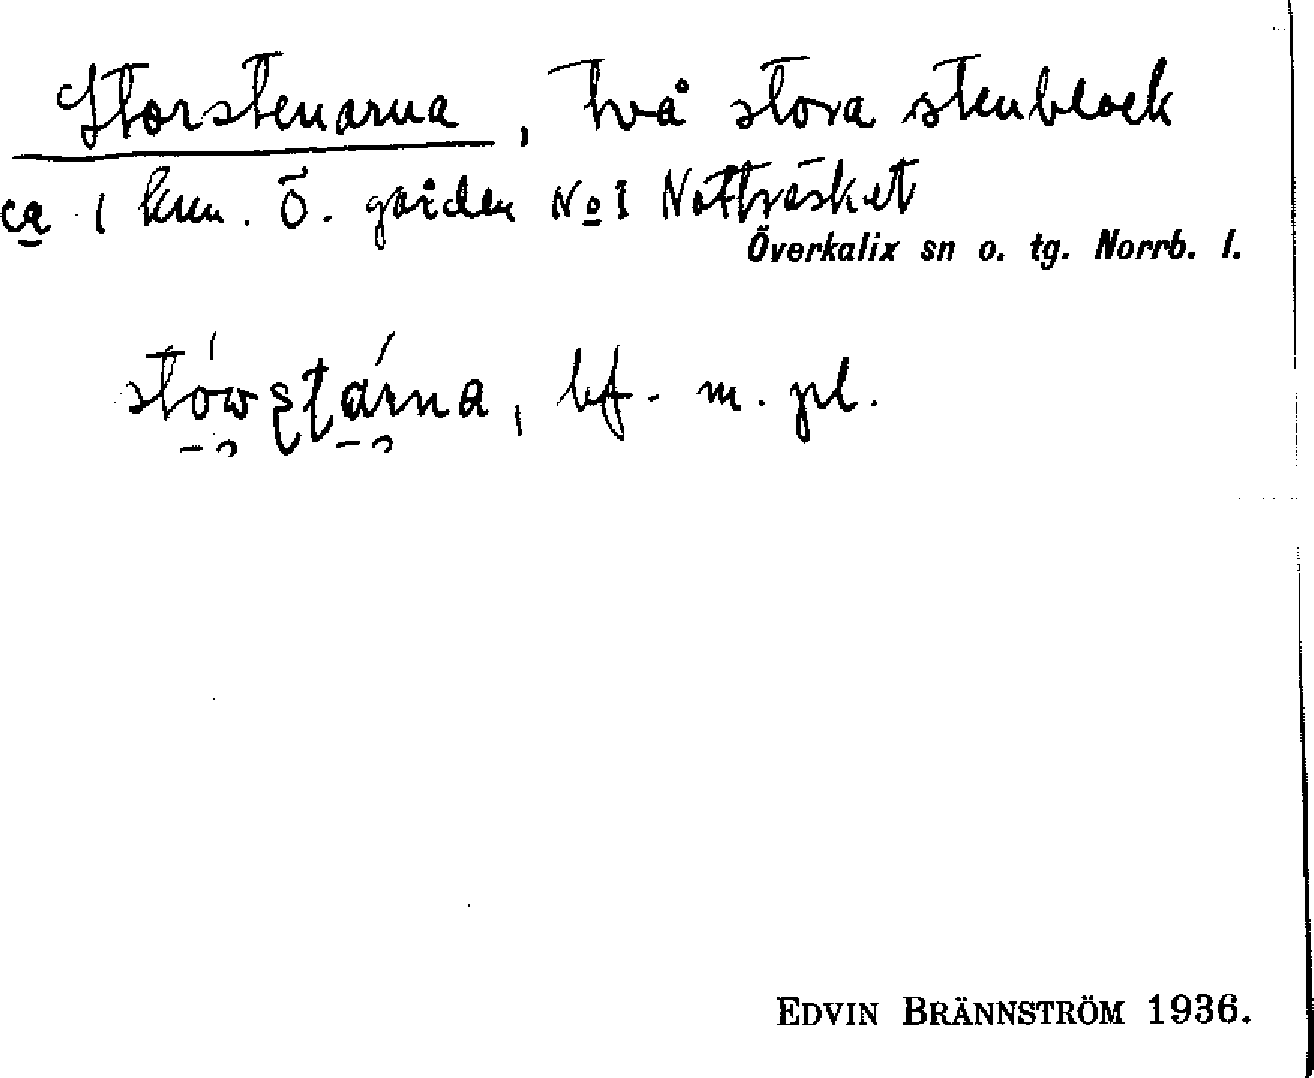 Storstenarna, två stora stenblock
ca 1 km. Ö. gården No 1 Notträsket
Överkalix sn o. tg. Norrb. l.
bf. m. pl.
EDVIN BRÄNNSTRÖM 1936.